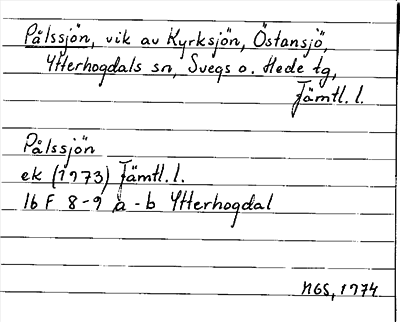 Pålssjön, vik av Kyrksjön, Östansjö,
Ytterhogdals sn, Svegs o. Hede tg,
Jämtl. l.
Pålssjön
ek (1973) Jämtl. l.
16 F 8-9 a - b Ytterhogdal
NGS, 1974